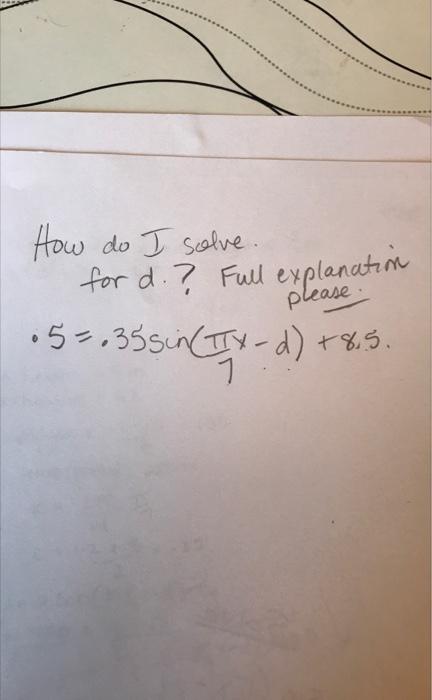 How do I solve.
for d.? Full explanation
please.
.5 = .35 sin(πx/7 - d) + 8.5.